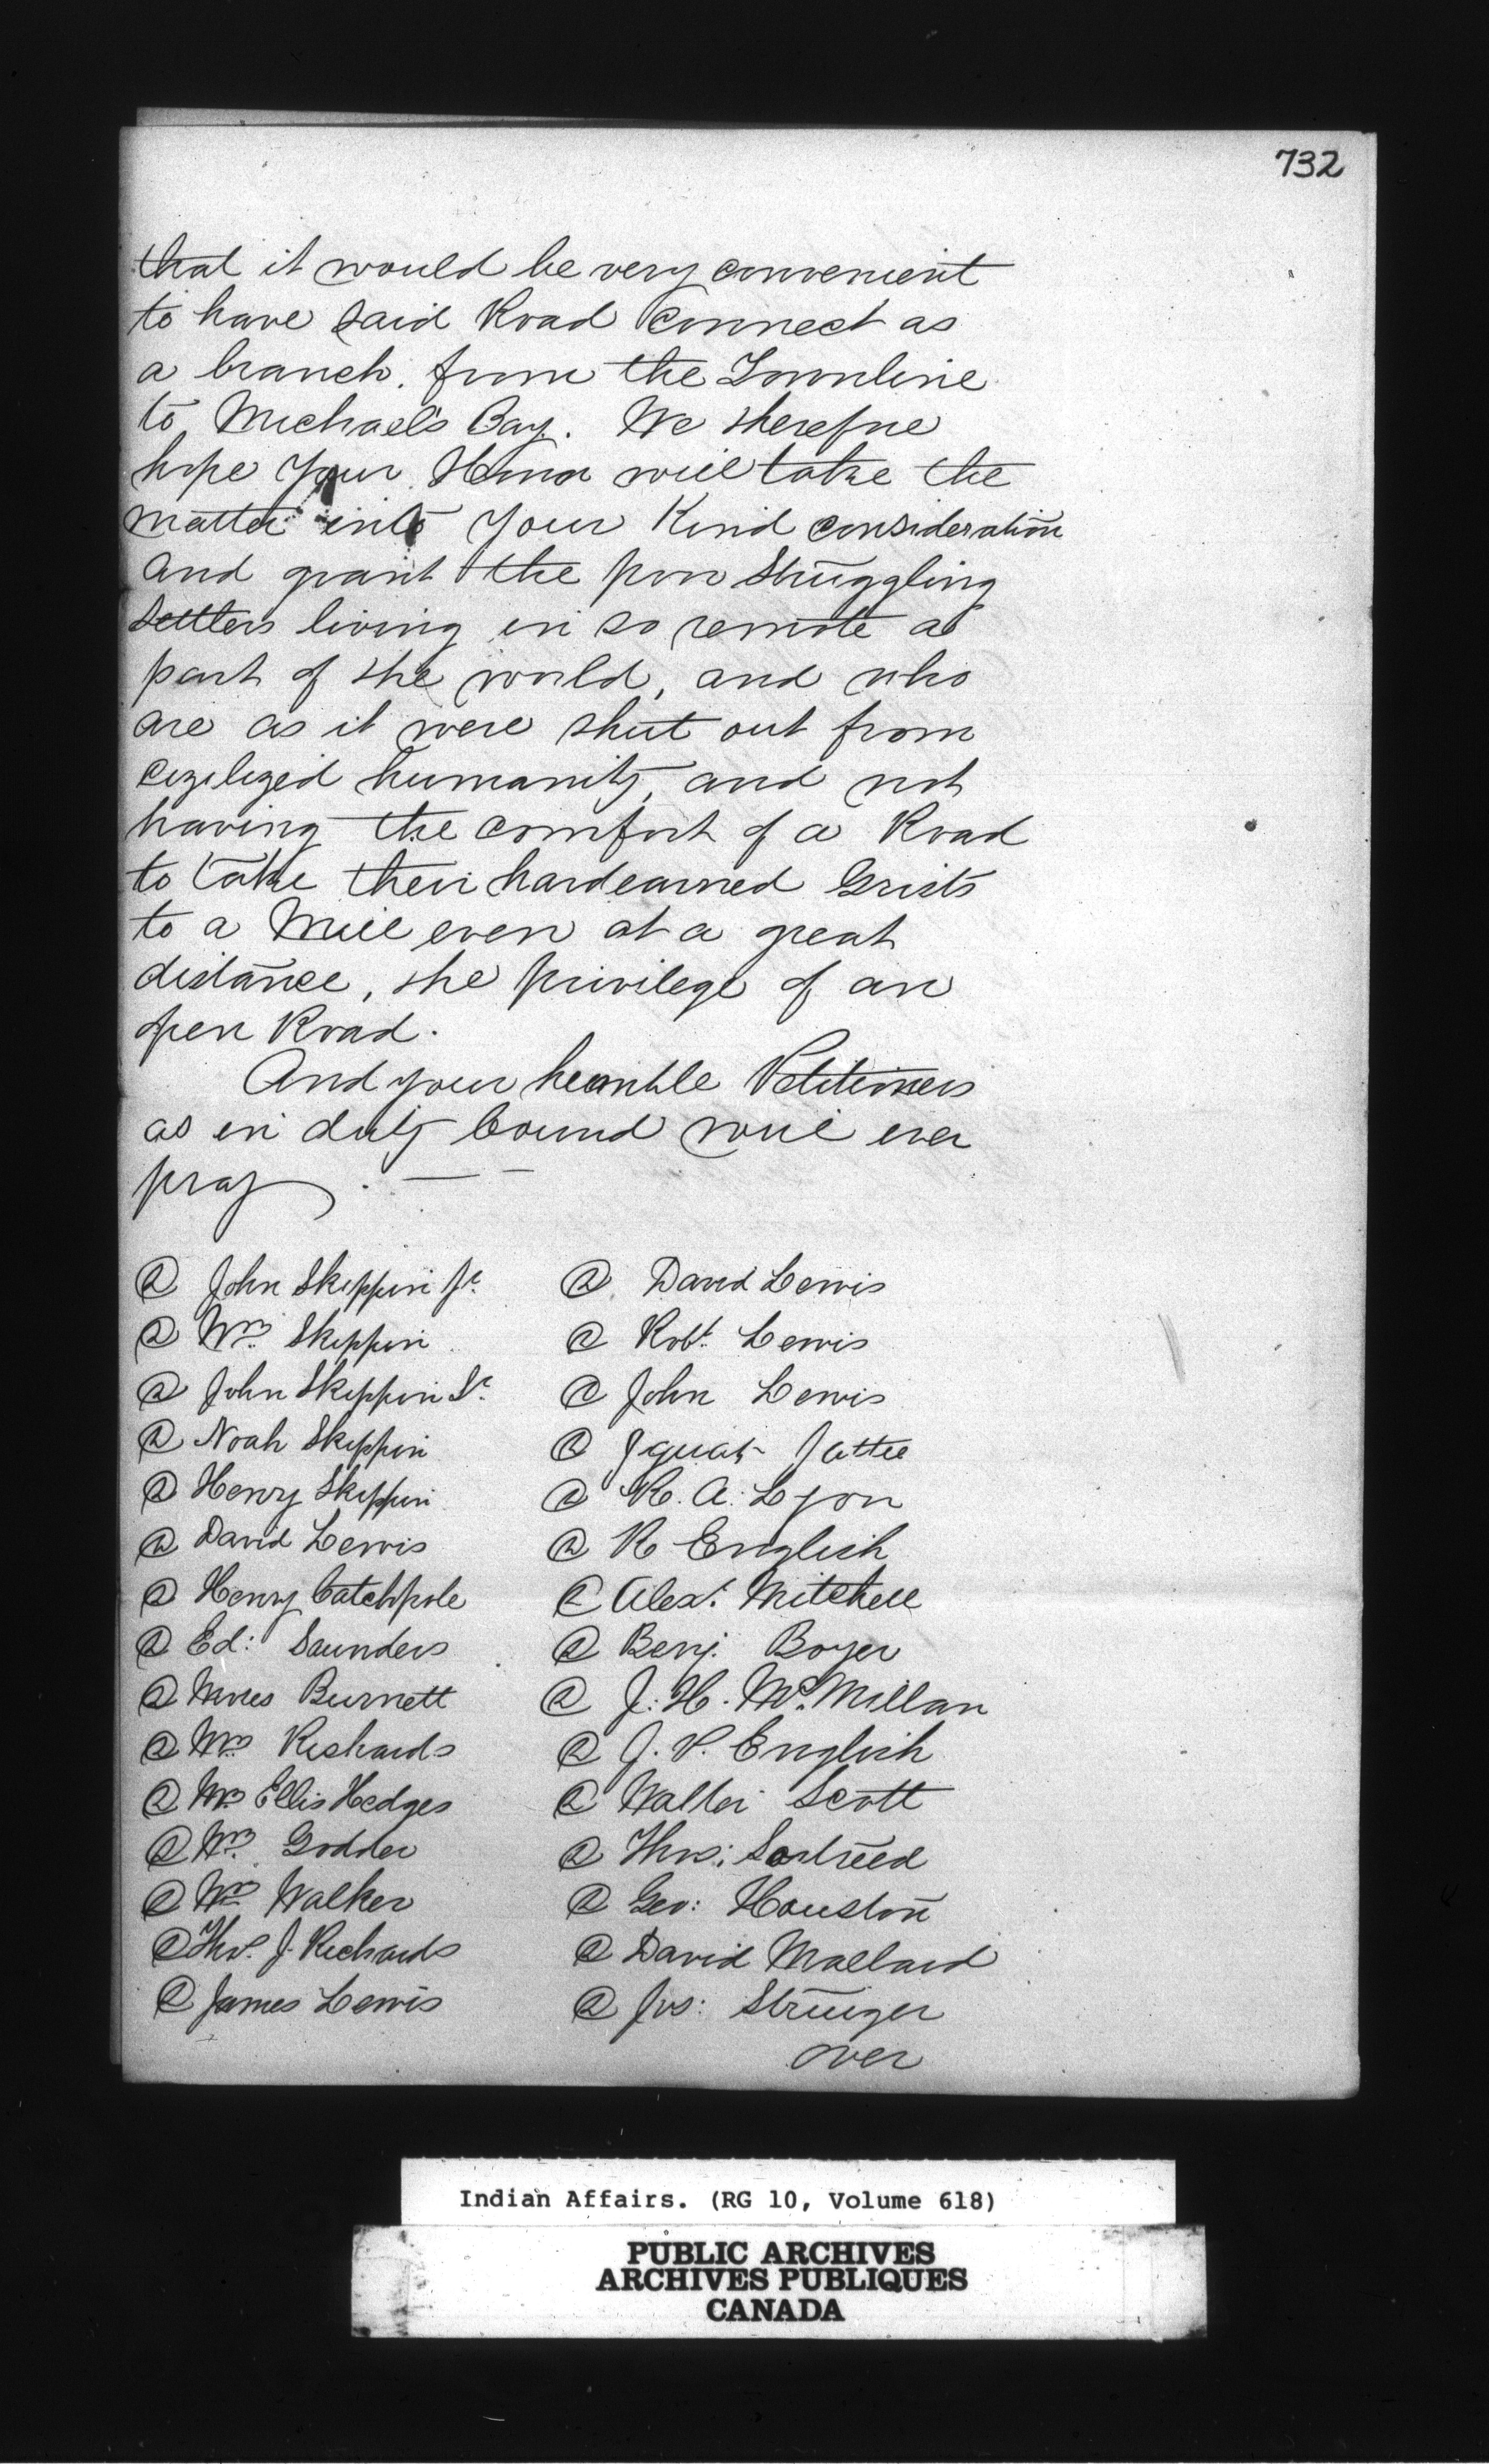 732
that it would be very convenient
to have said Road connect as
a branch. from the Townline
to Michael's Bay. We therefore
hope your Honor will take the
matter into your Kind consideration
and grant the poor Struggling
Settlers living in so remote a
part of the world, and who
are as it were shut out from
civilized humanity, and not
having the comfort of a Road
to take their hardearned Grists
to a Mill even at a great
distance, the privilege of an
open Road.
And your humble Petitioners
as in duty bound will ever
pray. —
@ John Skippin Jr. @ David Lewis
@ Wm. Skippin @ Robt. Lewis
@ John Skippin Sr. @ John Lewis
@ Noah Skippin @
@ Henry Skippin @ R. A. Lyon
@ David Lewis @ R English
@ Henry Catchpole @ Alexr. Mitchell
@ Ed: Saunders @ Benj. Boyer
@ Burnett @ J. H. McMillan
@ Wm. Richards @ J. P. English
@ Wm. Ellis Hedges @ Walter Scott
@ Wm. Godder @ Thos:
@ Wm. Walker @ Geo: Houston
@ Thos. J. Richards @ David Mallard
@ James Lewis @ Jos:
over
Indian Affairs. (RG 10, Volume 618)
PUBLIC ARCHIVES
ARCHIVES PUBLIQUES
CANADA